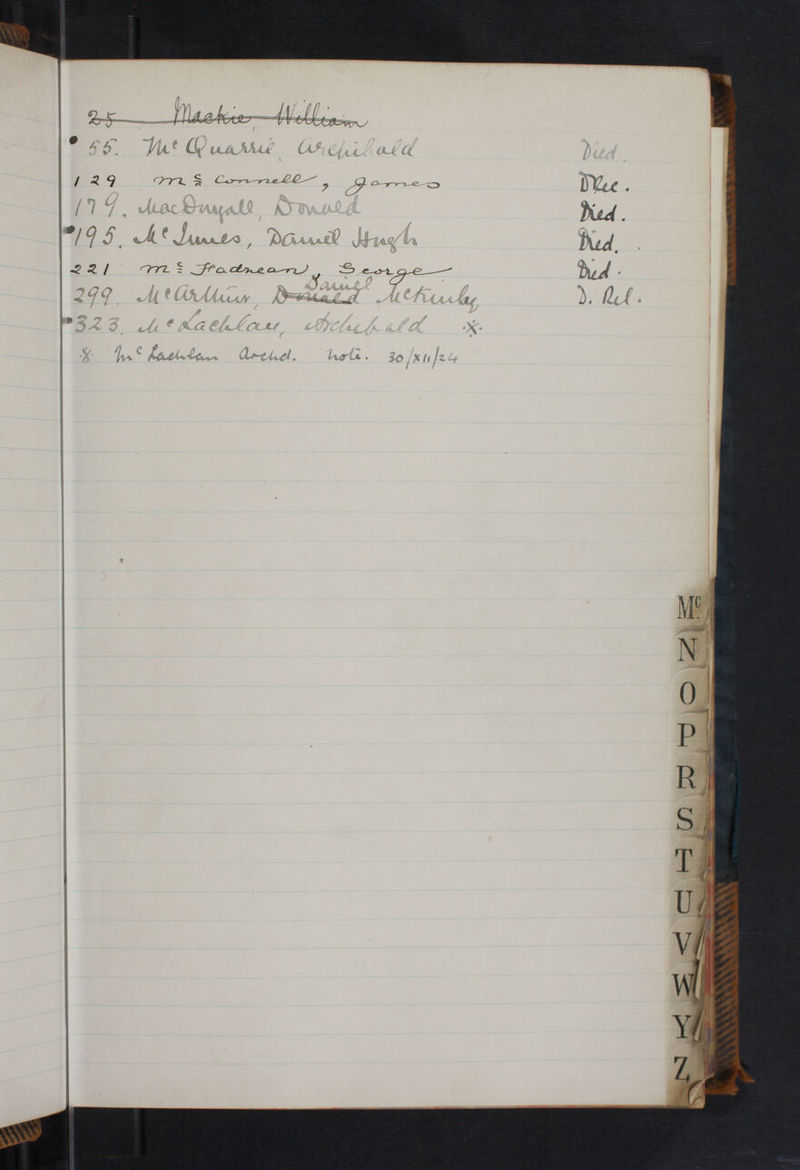 25 Mackie William
55. Mc Quarrie, Archibald Died.
129 Mc Connell, James Dec.
179. MacDougall, Donald Died.
195. Mc Innes, Daniel Hugh Died.
221 Mc Fadnean, George Died.
Daniel
299. McArthur, Donald McKinley D. Rel.
323. McLachlan, Archibald ※
※ McLachlan Archd. note. 30/XII/24
Mc
N
O
P
R
S
T
U
V
W
Y
Z